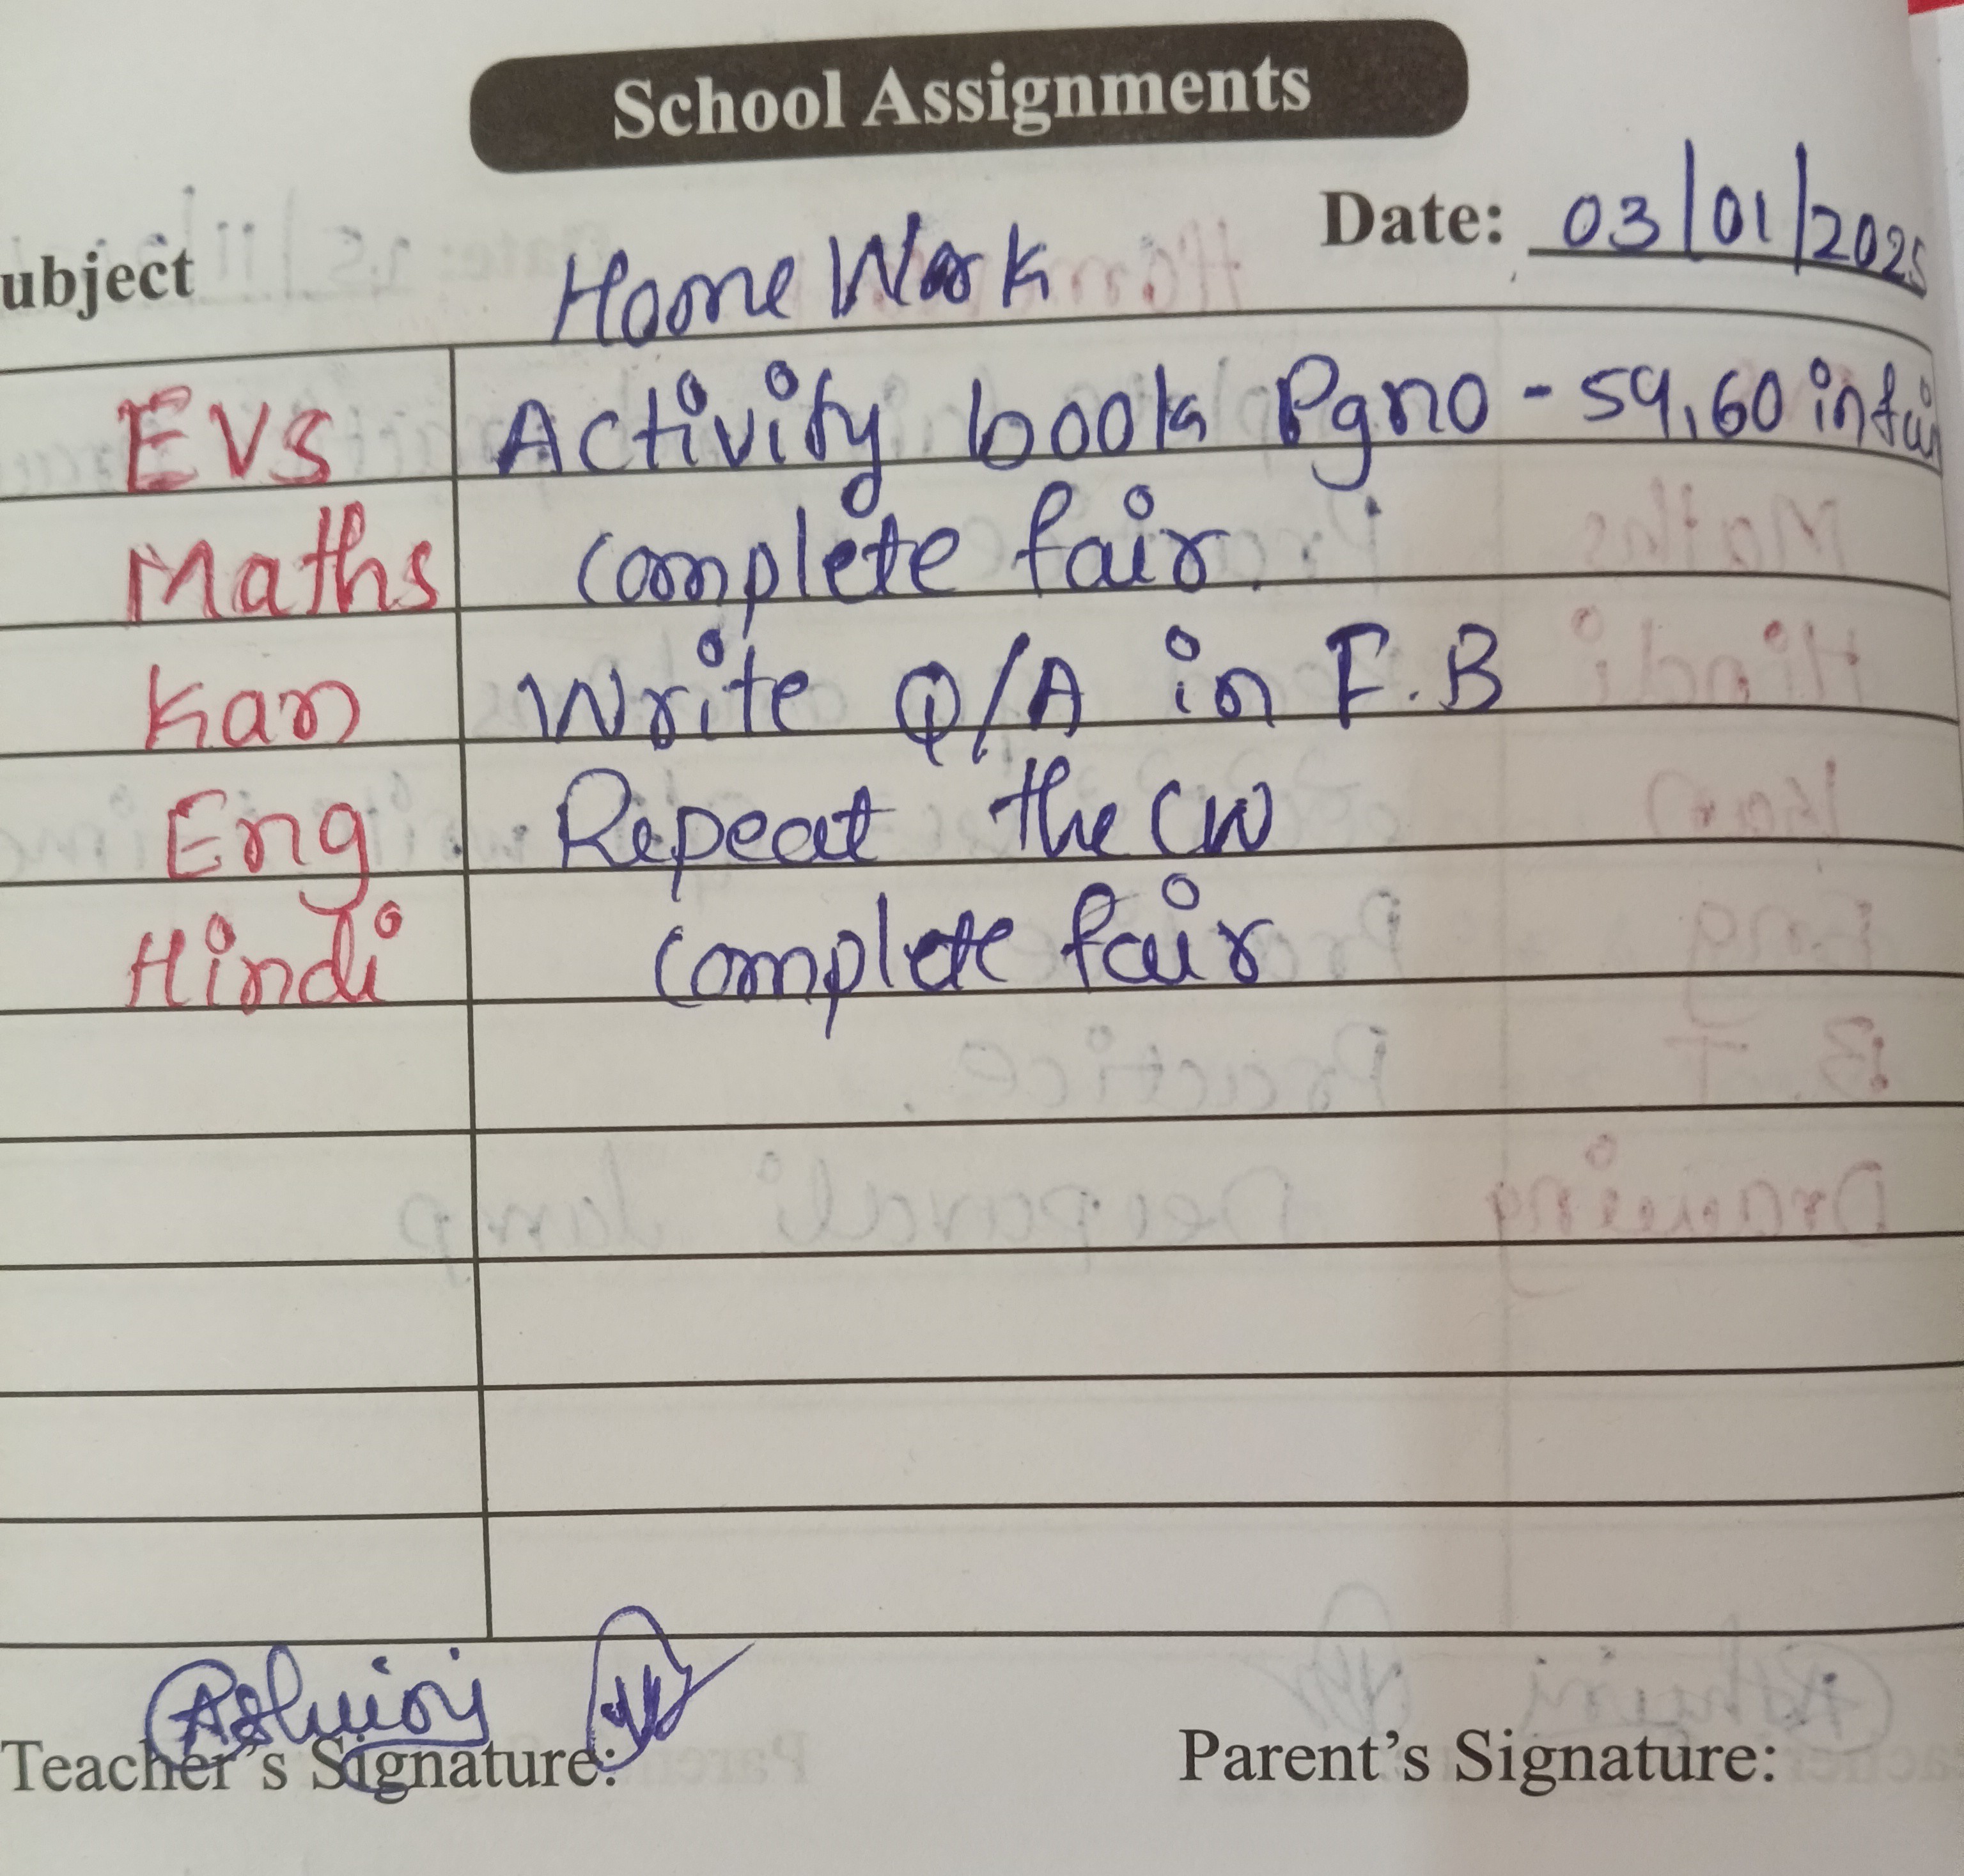 School Assignments
ubject Home Work Date: 03/01/2025
EVS Activity book Pgno - 59,60 in fair
Maths complete fair.
Kan Write Q/A in F.B
Eng Repeat the CW
Hindi complete fair
Ashwini
Teacher's Signature: Parent's Signature: